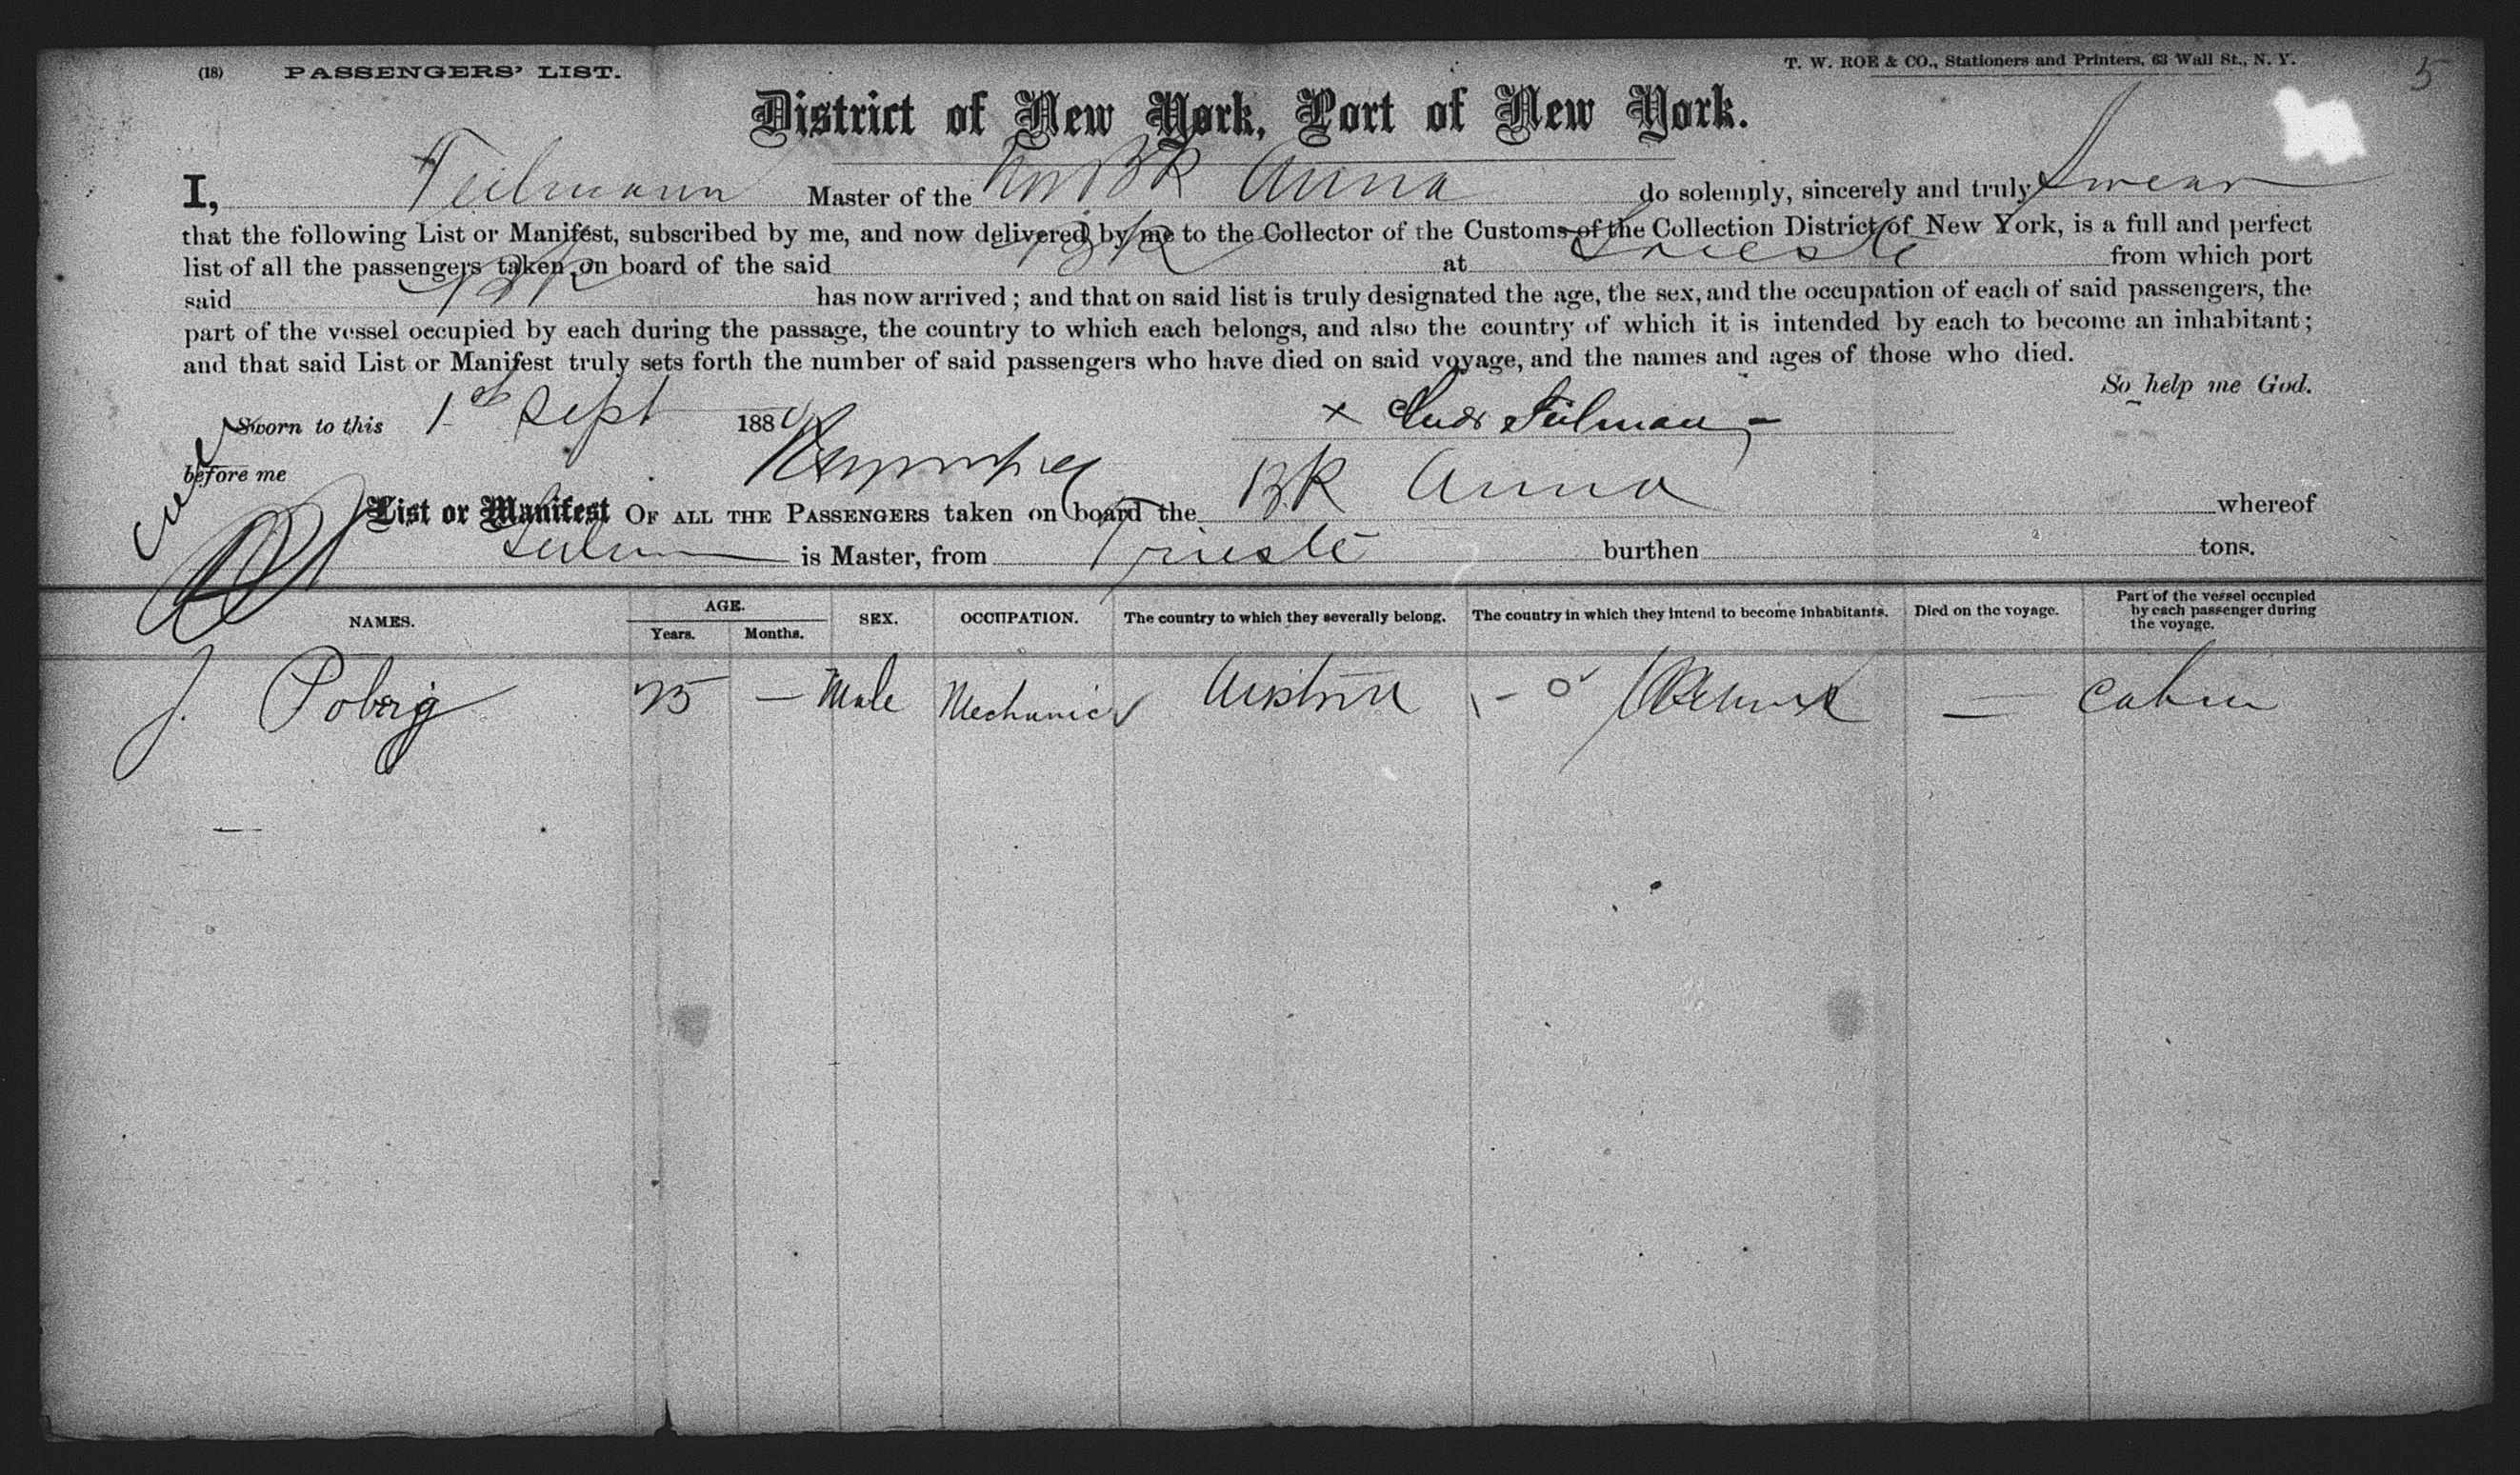 (18) PASSENGERS' LIST. T. W. ROE & CO., Stationers and Printers, 63 Wall St., N. Y. 5
District of New York, Port of New York.
I, Teilmann Master of the BK Anna do solemnly, sincerely and truly Swear
that the following List or Manifest, subscribed by me, and now delivered by me to the Collector of the Customs of the Collection District of New York, is a full and perfect
list of all the passengers taken on board of the said BK at Trieste from which port
said BK has now arrived ; and that on said list is truly designated the age, the sex, and the occupation of each of said passengers, the
part of the vessel occupied by each during the passage, the country to which each belongs, and also the country of which it is intended by each to become an inhabitant ;
and that said List or Manifest truly sets forth the number of said passengers who have died on said voyage, and the names and ages of those who died.
So help me God.
Sworn to this 1st Sept 188 x
before me
List or Manifest OF ALL THE PASSENGERS taken on board the BK Anna whereof
is Master, from Trieste burthen tons.
NAMES. AGE. Years. Months. SEX. OCCUPATION. The country to which they severally belong. The country in which they intend to become inhabitants. Died on the voyage. Part of the vessel occupied by each passenger during the voyage.
J. 25 — Male Mechanic Austria — Cabin